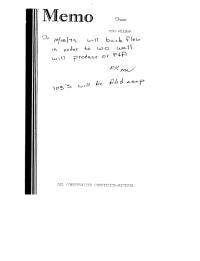 Memo
10/10/72 will back flow
in order to WO well
will produce or P&A
103's will be filed asap
OIL CONSERVATION COMMISSION-ARTESIA